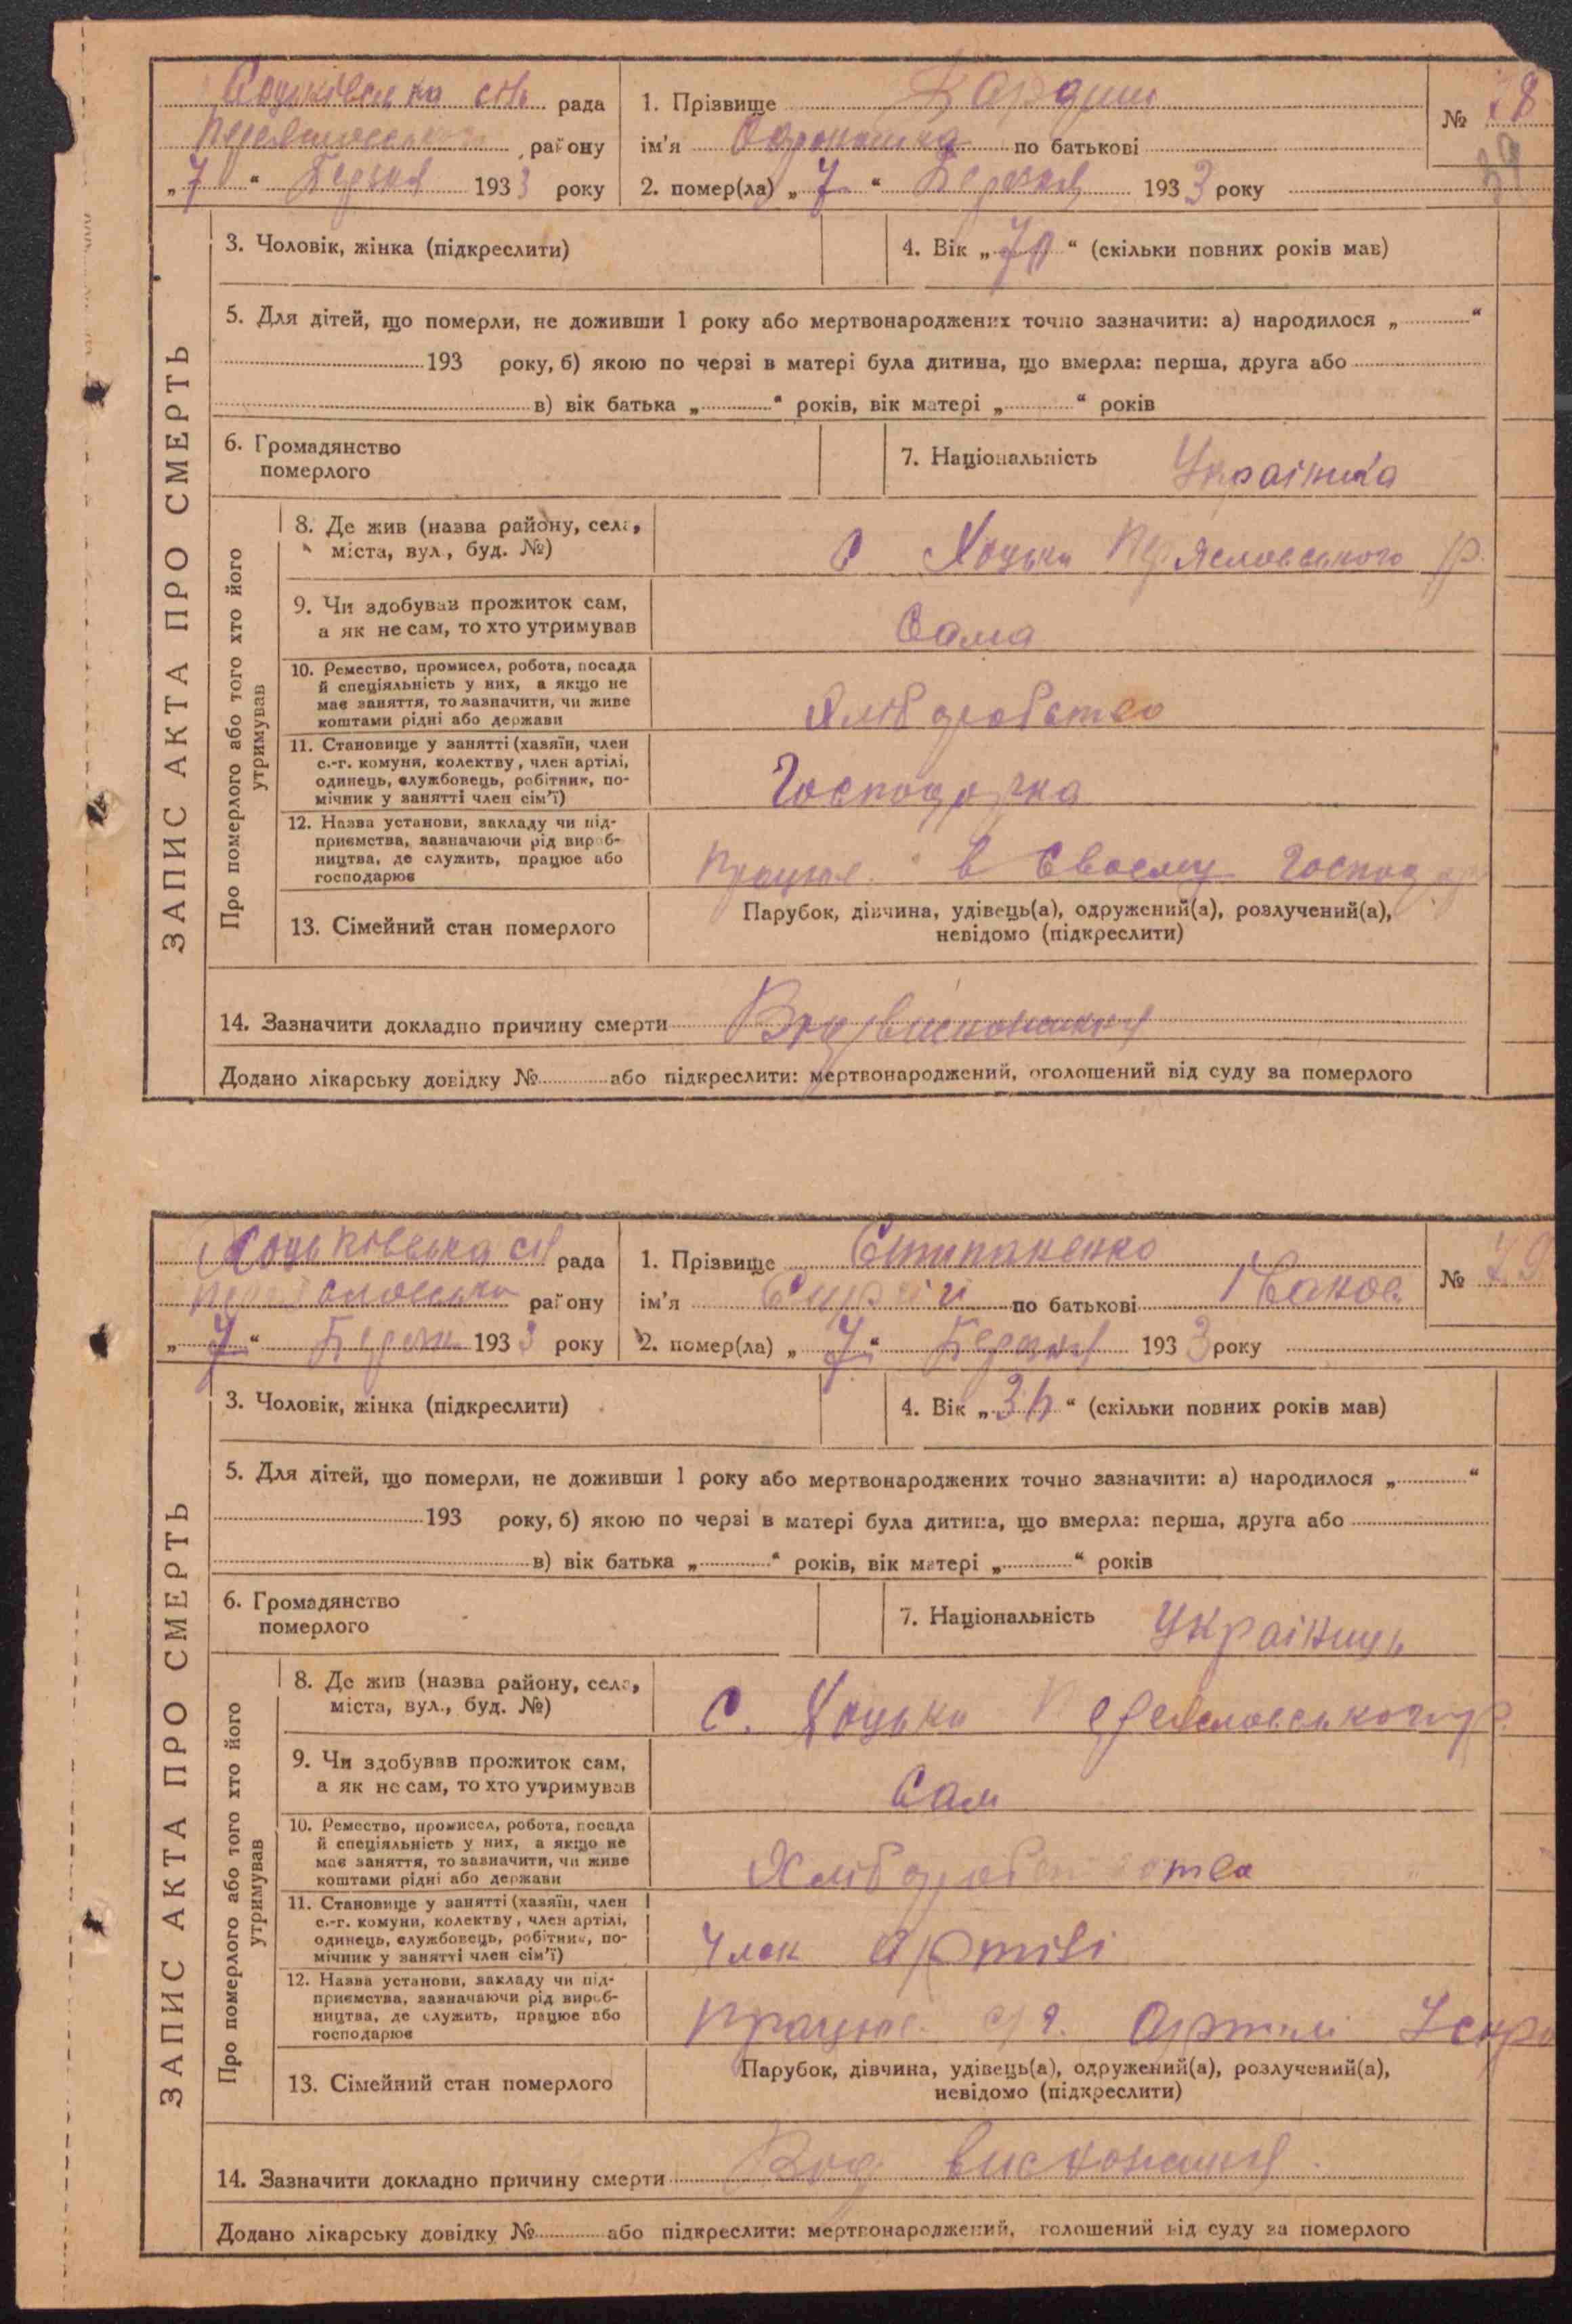 рада
району
„ 7 “ Березня 193 3 року
1. Прізвище
ім'я по батькові
2. помер(ла) „ 7 “ Березня 193 3 року
№ 28
39
ЗАПИС АКТА ПРО СМЕРТЬ
3. Чоловік, жінка (підкреслити)
4. Вік „ 70 “ (скільки повних років мав)
5. Для дітей, що померли, не доживши 1 року або мертвонароджених точно зазначити: а) народилося „ “
193 року, б) якою по черзі в матері була дитина, що вмерла: перша, друга або
в) вік батька „ “ років, вік матері „ “ років
6. Громадянство
померлого
7. Національність Українка
Про померлого або того хто його
утримував
8. Де жив (назва району, села,
міста, вул., буд. №)
с Хоцьки Переяславського р.
9. Чи здобував прожиток сам,
а як не сам, то хто утримував
Сама
10. Ремество, промисел, робота, посада
й спеціяльність у них, а якщо не
має заняття, то зазначити, чи живе
коштами рідні або держави
Хліборобство
11. Становище у занятті (хазяїн, член
с.-г. комуни, колектву, член артілі,
одинець, службовець, робітник, по-
мічник у занятті член сім'ї)
Господарка
12. Назва установи, закладу чи під-
приємства, зазначаючи рід вироб-
ництва, де служить, працює або
господарює
Працює в своєму господар
13. Сімейний стан померлого
Парубок, дівчина, удівець(а), одружений(а), розлучений(а),
невідомо (підкреслити)
14. Зазначити докладно причину смерти
Додано лікарську довідку № або підкреслити: мертвонароджений, оголошений від суду за померлого
Хоцьківська с/р рада
району
„ 7 “ Березня 193 3 року
1. Прізвище Степаненко
ім'я Сиргій по батькові
2. помер(ла) „ 7 “ Березня 193 3 року
№ 29
ЗАПИС АКТА ПРО СМЕРТЬ
3. Чоловік, жінка (підкреслити)
4. Вік „ “ (скільки повних років мав)
5. Для дітей, що померли, не доживши 1 року або мертвонароджених точно зазначити: а) народилося „ “
193 року, б) якою по черзі в матері була дитина, що вмерла: перша, друга або
в) вік батька „ “ років, вік матері „ “ років
6. Громадянство
померлого
7. Національність Українець
Про померлого або того хто його
утримував
8. Де жив (назва району, села,
міста, вул., буд. №)
С. Хоцьки Переяславського р.
9. Чи здобував прожиток сам,
а як не сам, то хто утримував
Сам
10. Ремество, промисел, робота, посада
й спеціяльність у них, а якщо не
має заняття, то зазначити, чи живе
коштами рідні або держави
11. Становище у занятті (хазяїн, член
с.-г. комуни, колектву, член артілі,
одинець, службовець, робітник, по-
мічник у занятті член сім'ї)
Член артілі
12. Назва установи, закладу чи під-
приємства, зазначаючи рід вироб-
ництва, де служить, працює або
господарює
Працює с/г. артілі Іскра
13. Сімейний стан померлого
Парубок, дівчина, удівець(а), одружений(а), розлучений(а),
невідомо (підкреслити)
14. Зазначити докладно причину смерти Від виснонання
Додано лікарську довідку № або підкреслити: мертвонароджений, голошений від суду за померлого